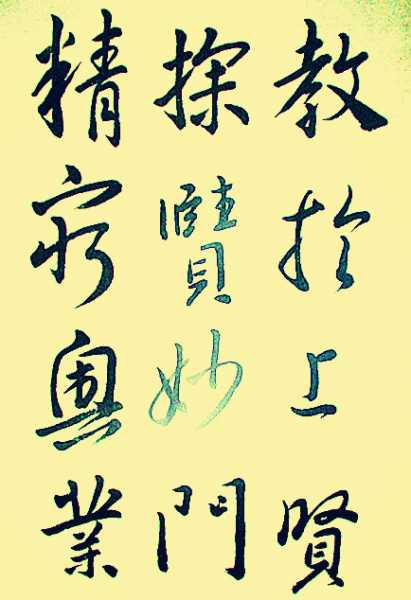 教於上賢
探賾妙門
精窮奧業